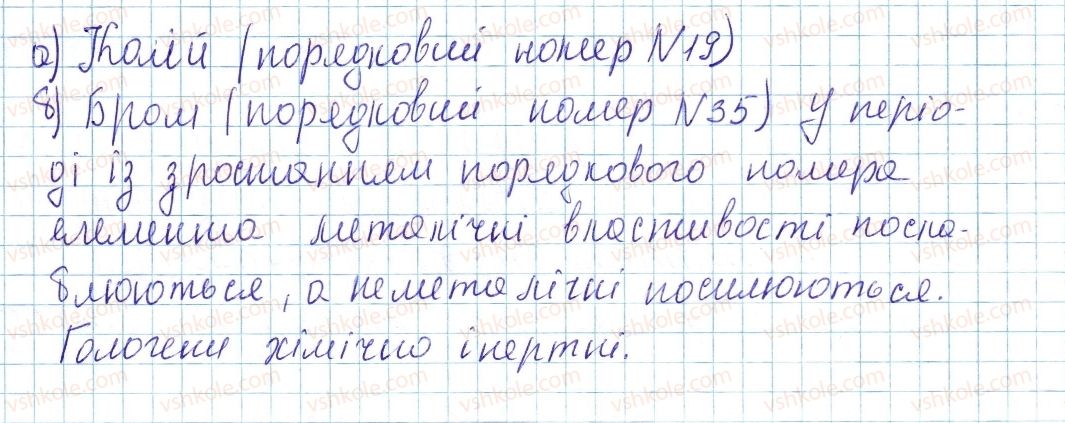 а) Калій (порядковий номер N19)
б) Бром (порядковий номер N35) У періо-
ді із зростанням порядкового номера
елемента металічні властивості посла-
блюються, а неметалічні посилюються.
Галогени хімічно інертні.